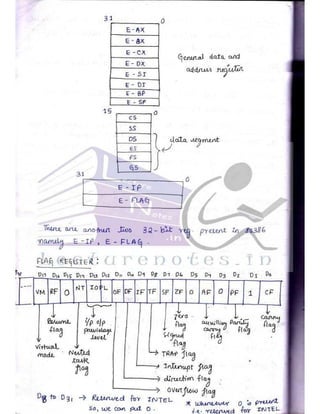 31 0
E-AX
E-BX
E-CX
E-DX
E-SI
E-DI
E-BP
E-SP
General data and
address register
15 0
CS
SS
DS
ES
FS
GS
data segment
31 0
E-IP
E-FLAG
There are another two 32-bit reg. present in 80386
namely E-IP, E-FLAG.
FLAG REGISTER:
D17 D16 D15 D14 D13 D12 D11 D10 D9 D8 D7 D6 D5 D4 D3 D2 D1 D0
VM RF 0 NT IOPL OF DF IF TF SF ZF 0 AF 0 PF 1 CF
Virtual
mode
Resume
flag
Nested
task
flag
I/p o/p
previladge
level
Overflow flag
direction flag
Interrupt flag
TRAP flag
Signed
flag
zero
flag
auxiliary carry
flag
Parity
flag
carry
flag
D18 to D31 → Reserved for INTEL
So, we can put 0.
* whenever 0 is present
i.e. reserved for INTEL